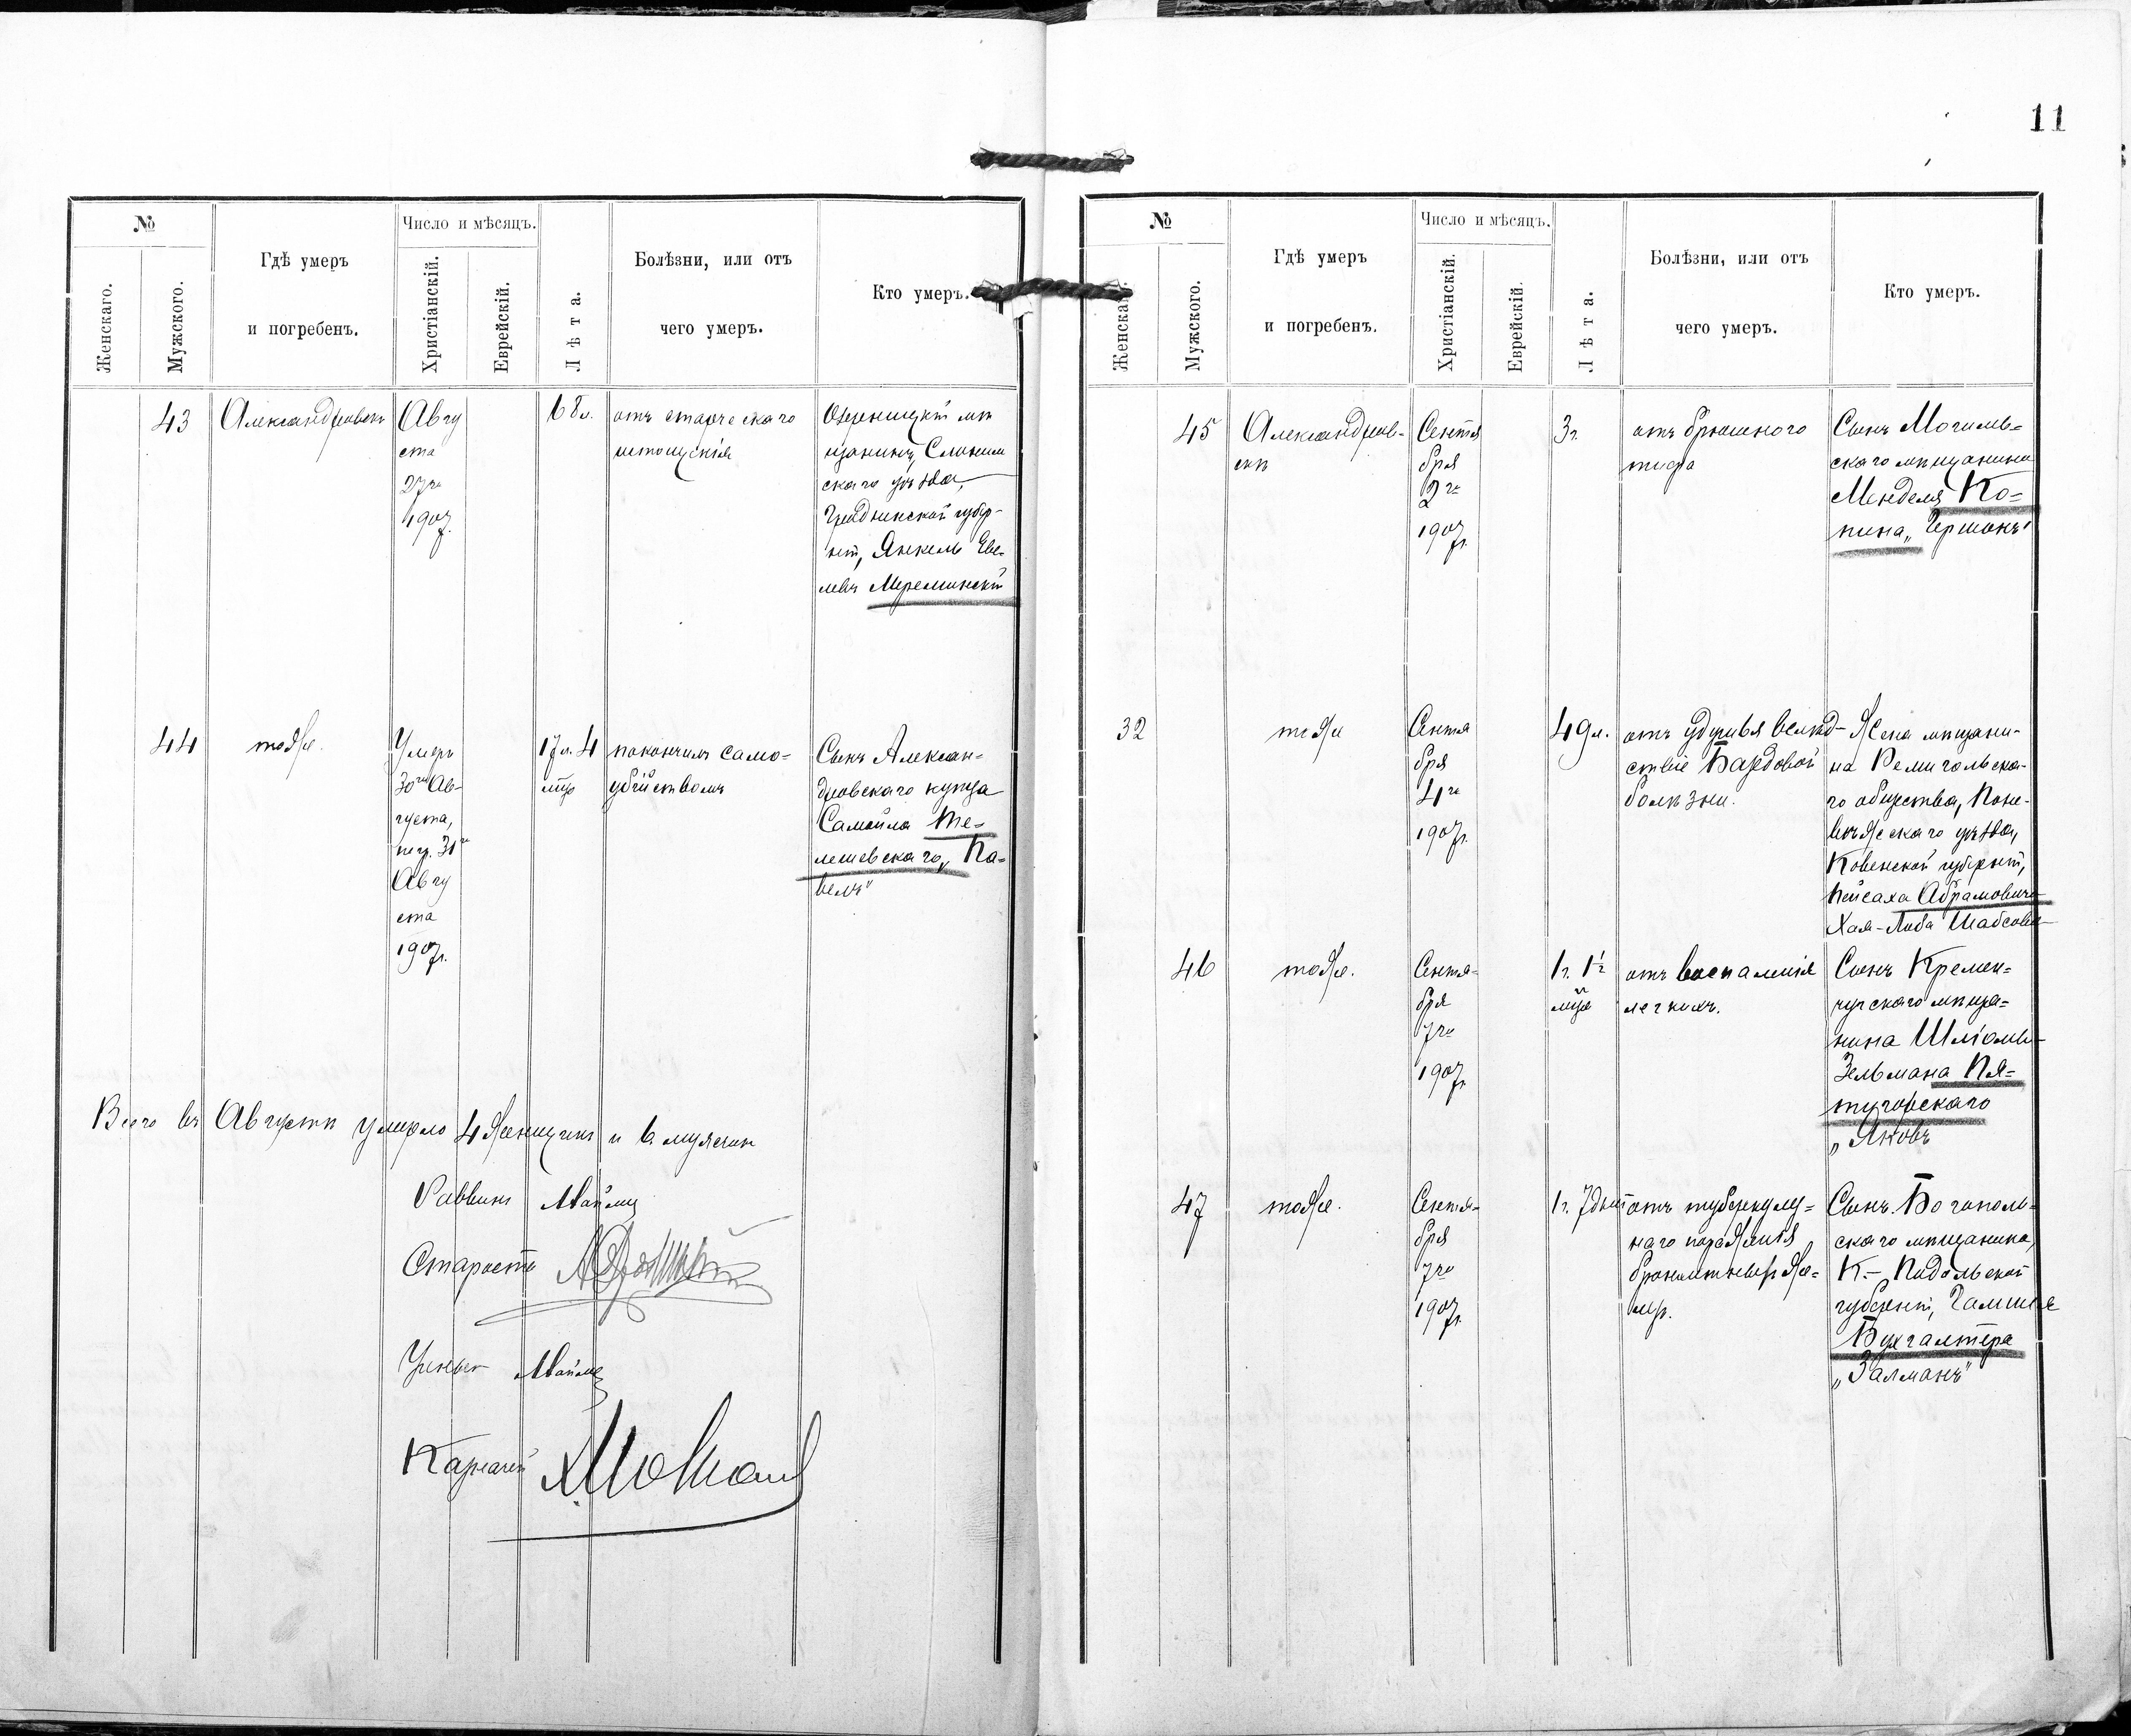 №
Женскаго.
Мужского.
Гдѣ умеръ
и погребенъ.
Число и мѣсяцъ.
Христіанскій.
Еврейскій.
Лѣта.
Болѣзни, или отъ
чего умеръ.
Кто умеръ.
43
Александровскъ
Авгу
ста
27го
1907г.
68л.
отъ старческаго
истощенія
мѣ
щанинъ, Слоним
скаго уѣзда,
Гродненской губер-
ніи, Янкель Еве-
левъ Мереминскій
44
тоже.
Умеръ
30го Ав-
густа,
погр. 31го
Авгу
ста
1907г.
17л. 4
мѣс
покончилъ само-
убійствомъ
Сынъ Алексан-
дровскаго купца
Самойла Те-
лешевскаго „Па-
велъ"
Всего въ Августѣ умерло 4 женщинъ и 6 мужчин
Раввинъ
Староста
Ученый
Казначей
11
№
Женскаго.
Мужского.
Гдѣ умеръ
и погребенъ.
Число и мѣсяцъ.
Христіанскій.
Еврейскій.
Лѣта.
Болѣзни, или отъ
чего умеръ.
Кто умеръ.
45
Александров-
скъ
Сентя
бря
2го
1907г.
3г.
отъ брюшного
тифа
Сынъ Могилев-
скаго мѣщанина
Менделя Ко-
пина „Гершонъ"
32
тоже
Сентя
бря
4го
1907г.
49л.
отъ удушья вслѣд-
ствіе Базедовой
болѣзни.
Жена мѣщани-
на Ремигольска-
го общества, Поне-
вѣжскаго уѣзда,
Ковенской губерніи,
Пейсаха Абрамовича
Хая-Люба Шабсовна
46
тоже.
Сентя-
бря
7го
1907г.
1г. 1½
мѣс
отъ воспаленія
легкихъ.
Сынъ Кремен-
чугскаго мѣща-
нина Шліомы-
Зельмана Пя-
тигорскаго
„Яковъ
47
тоже.
Сентя-
бря
7го
1907г.
1г. 7дней
отъ туберкулез-
наго пораженія
бронхитныхъ же-
лезъ.
Сынъ Богополь-
скаго мѣщанина,
К.-Подольской
губерніи,
Бухгалтера
„Залманъ"